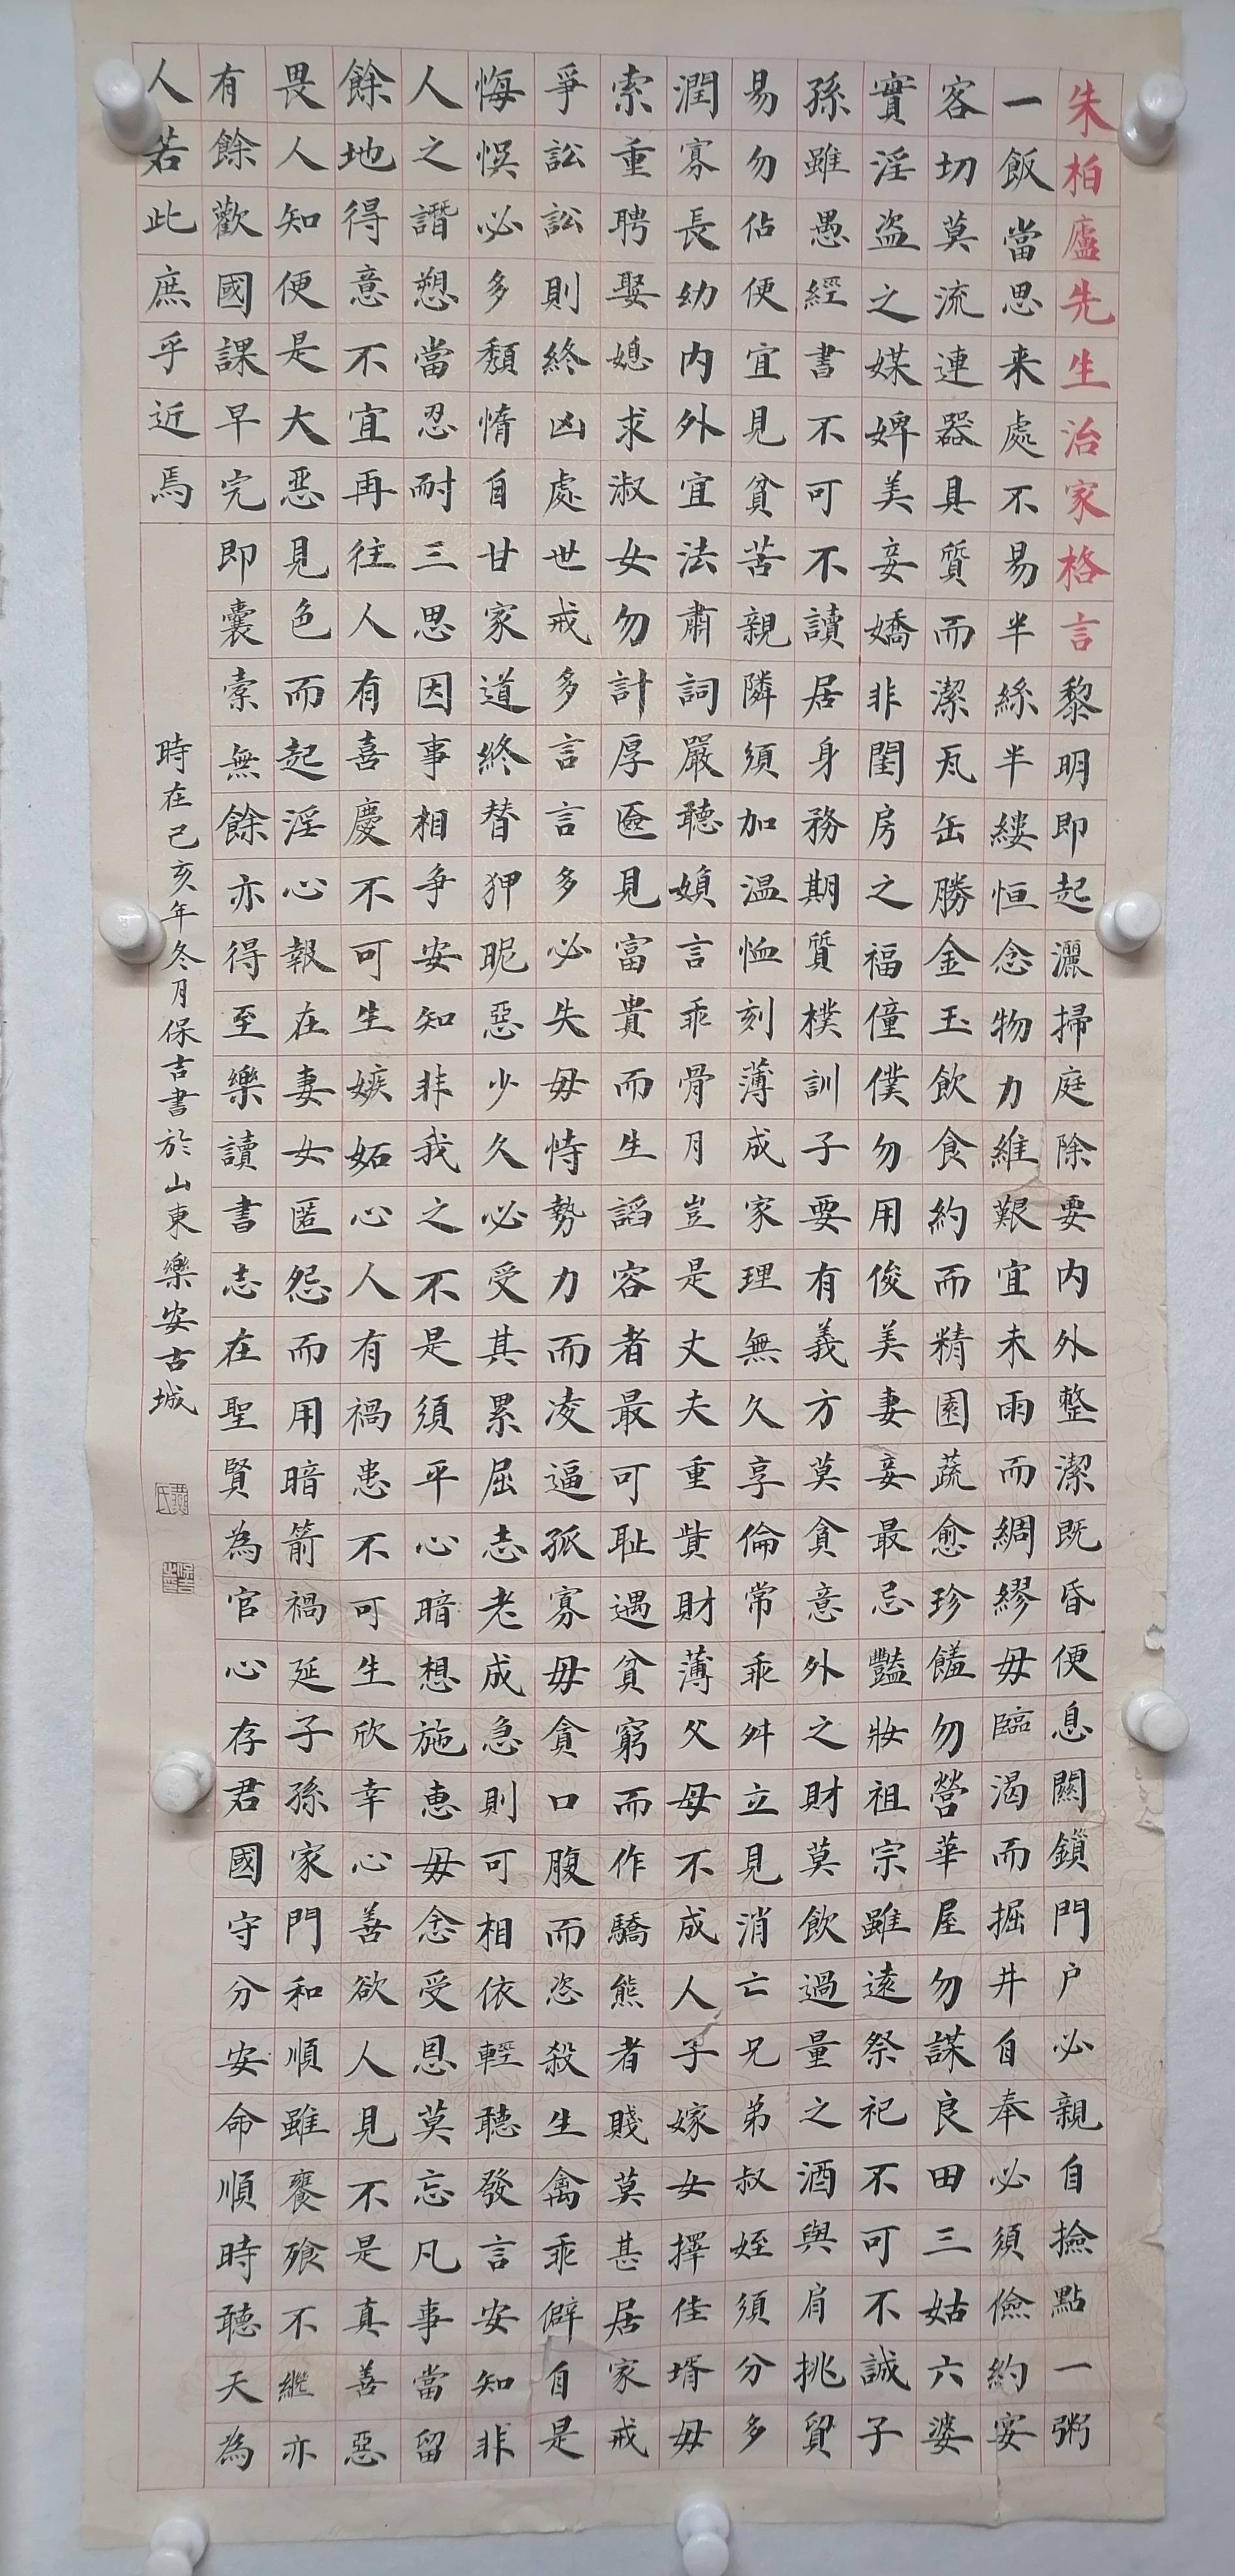 朱柏廬先生治家格言黎明即起灑掃庭除要内外整潔既昏便息關鎖門户必親自撿點一粥
一飯當思来處不易半絲半縷恒念物力維艱宜未雨而綢繆毋臨渴而掘井自奉必須儉約宴
客切莫流連器具質而潔瓦缶勝金玉飲食約而精園蔬愈珍饈勿營華屋勿謀良田三姑六婆
實淫盗之媒婢美妾嬌非閨房之福僮僕勿用俊美妻妾最忌豔妝祖宗雖遠祭祀不可不誠子
孫雖愚經書不可不讀居身務期質樸訓子要有義方莫貪意外之財莫飲過量之酒與肩挑貿
易勿佔便宜見貧苦親隣須加温恤刻薄成家理無久享倫常乖舛立見消亡兄弟叔姪須分多
潤寡長幼内外宜法肅詞嚴聽媍言乖骨月豈是丈夫重貲財薄父母不成人子嫁女擇佳壻毋
索重聘娶媳求淑女勿計厚匳見富貴而生謟容者最可耻遇貧窮而作驕熊者賤莫甚居家戒
爭訟訟則終凶處世戒多言言多必失毋恃勢力而凌逼孤寡毋貪口腹而恣殺生禽乖僻自是
悔悮必多頹惰自甘家道終替狎昵惡少久必受其累屈志老成急則可相依輕聽發言安知非
人之譖愬當忍耐三思因事相争安知非我之不是須平心暗想施惠毋念受恩莫忘凡事當留
餘地得意不宜再往人有喜慶不可生嫉妬心人有禍患不可生欣幸心善欲人見不是真善惡
畏人知便是大惡見色而起淫心報在妻女匿怨而用暗箭禍延子孫家門和順雖饔飧不繼亦
有餘歡國課早完即囊橐無餘亦得至樂讀書志在聖賢為官心存君國守分安命順時聽天為
人若此庶乎近焉
時在己亥年冬月保吉書於山東樂安古城